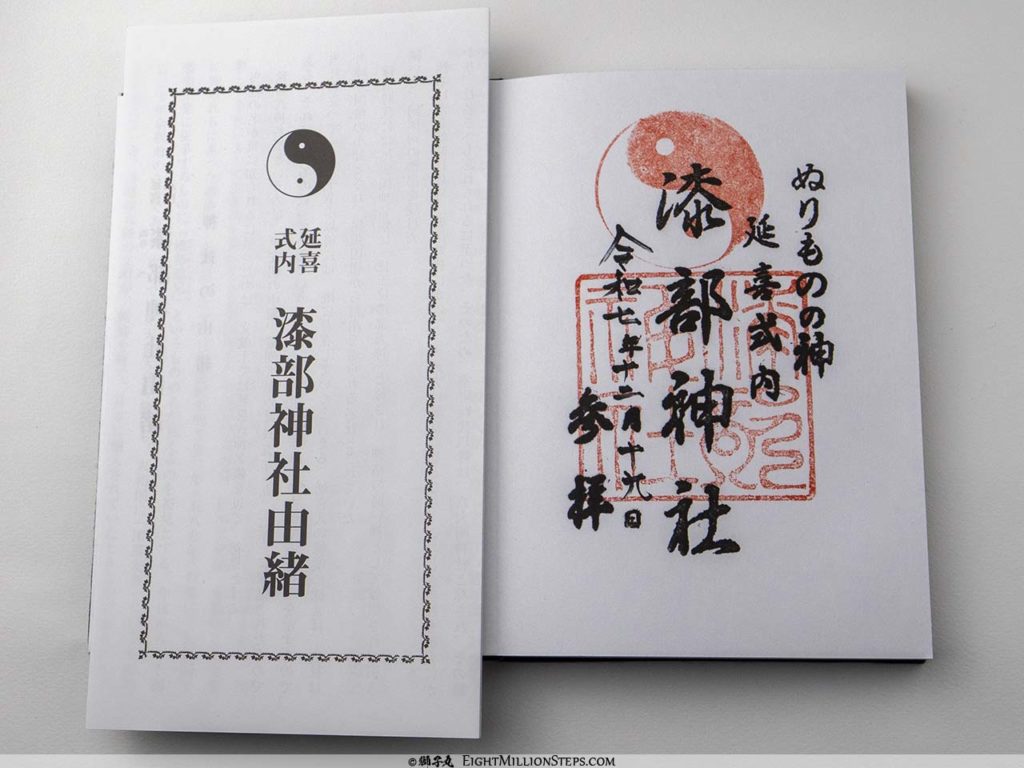 延喜
式内
漆部神社由緒
ぬりものの神
延喜式内
漆部神社
令和七年十二月十九日
参拝
©獅子丸 EightMillionSteps.com